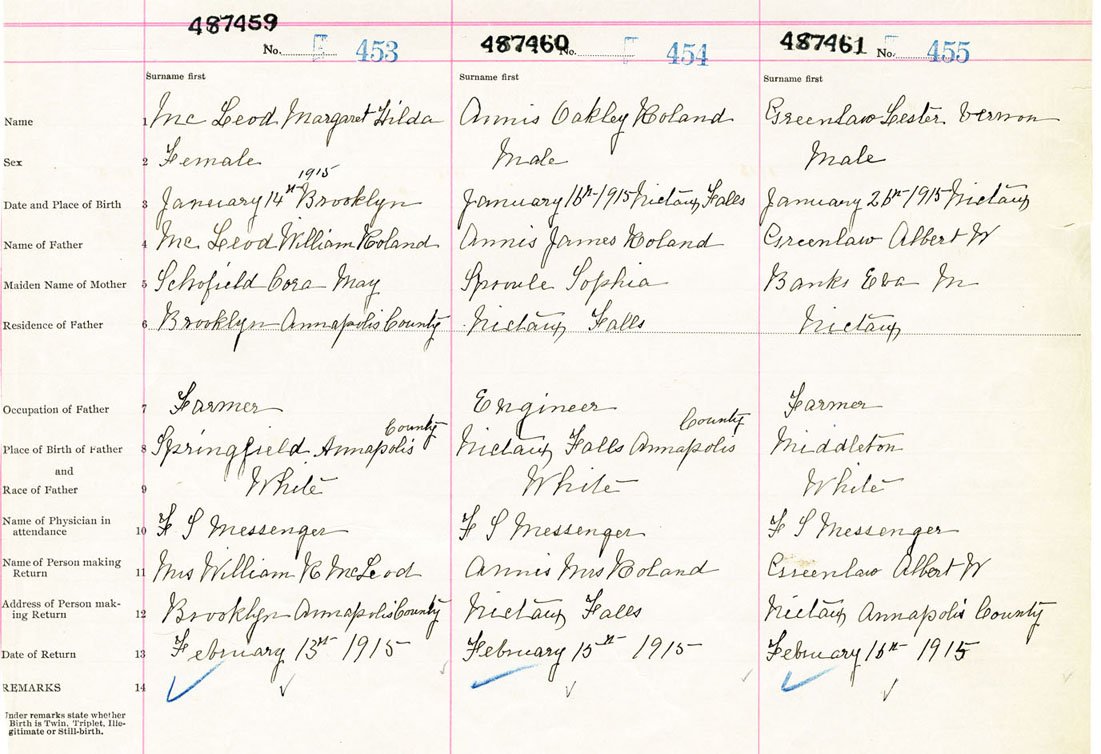 487459 487460 487461
No. E 453 No. E 454 No. E 455
Surname first Surname first Surname first
Name 1 Mc Leod Margaret Hilda Annis Oakley Roland Greenlaw Lester Vernon
Sex 2 Female Male Male
1915
Date and Place of Birth 3 January 14th Brooklyn January 16th 1915 Nictaux Falls January 26th 1915 Nictaux
Name of Father 4 Mc Leod William Roland Annis James Roland Greenlaw Albert W
Maiden Name of Mother 5 Schofield Cora May Sproule Sophia Banks Eva M
Residence of Father 6 Brooklyn Annapolis County Nictaux Falls Nictaux
Occupation of Father 7 Farmer Engineer Farmer
County County
Place of Birth of Father 8 Springfield Annapolis Nictaux Falls Annapolis Middleton
and
Race of Father 9 White White White
Name of Physician in
attendance 10 F S Messenger F S Messenger F S Messenger
Name of Person making
Return 11 Mrs William R McLeod Annis Mrs Roland Greenlaw Albert W
Address of Person mak-
ing Return 12 Brooklyn Annapolis County Nictaux Falls Nictaux Annapolis County
Date of Return 13 February 13th 1915 February 15th 1915 February 16th 1915
REMARKS 14
Under remarks state whether
Birth is Twin, Triplet, Ille-
gitimate or Still-birth.